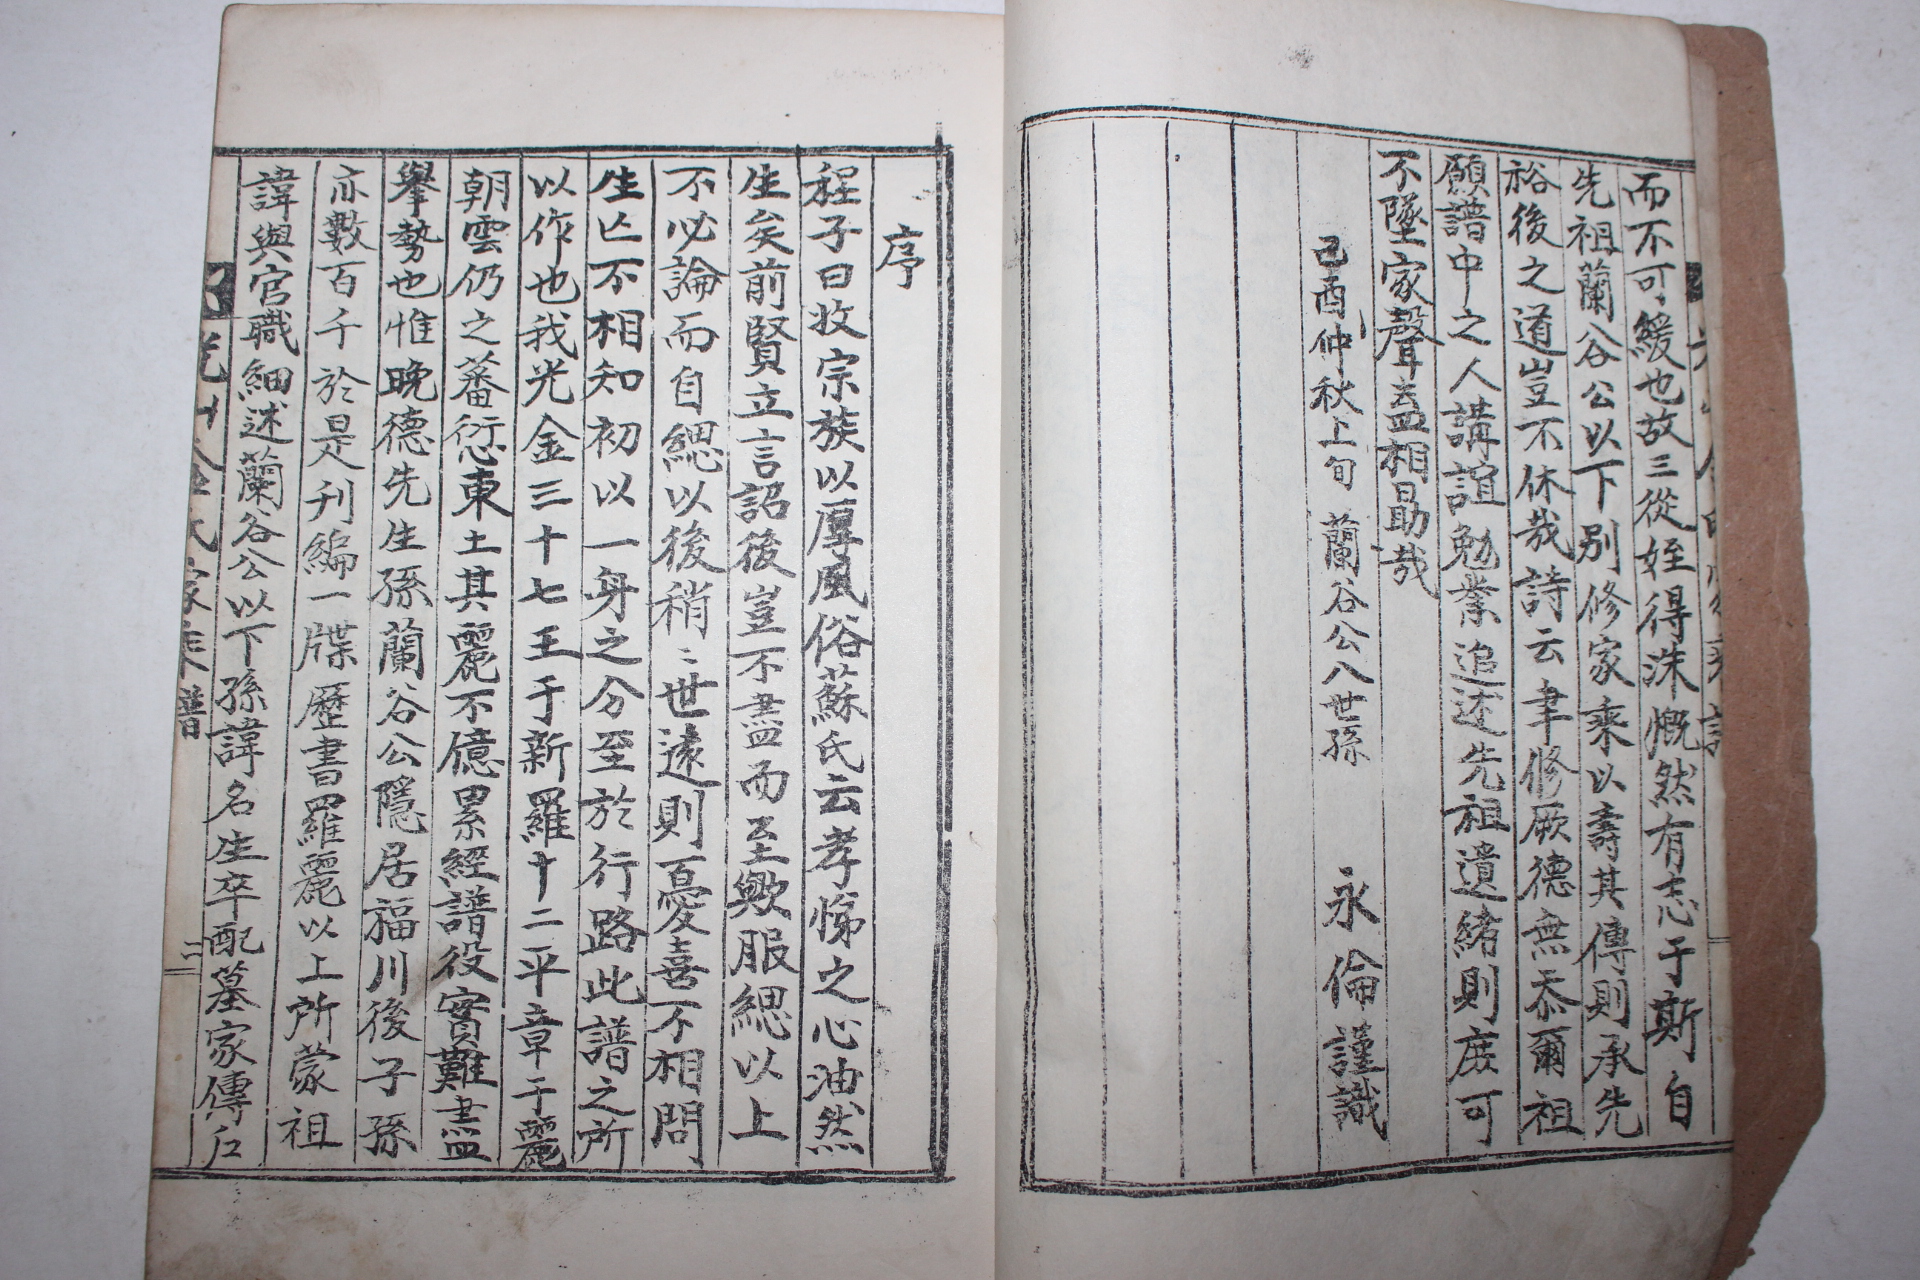 而不可緩也故三從姪得洙慨然有志于斯自
先祖蘭谷公以下別修家乘以壽其傳則承先
裕後之道豈不休哉詩云聿修厥德無忝爾祖
願譜中之人講誼勉業追述先祖遺緖則庶可
不墜家聲盍相勗哉
己酉仲秋上旬 蘭谷公八世孫 永倫謹識
序
程子曰收宗族以厚風俗蘇氏云孝悌之心油然
生矣前賢立言詔後豈不盡而至歟服緦以上
不必論而自緦以後稍〻世遠則憂喜不相問
生亡不相知初以一身之分至於行路此譜之所
以作也我光金三十七王于新羅十二平章于麗
朝雲仍之蕃衍東土其麗不億累經譜役實難盡
擧勢也惟晩德先生孫蘭谷公隱居福川後子孫
亦數百千於是刊編一牒歷書羅麗以上所蒙祖
諱與官職細述蘭谷公以下孫諱名生卒配墓家傳
光州金氏家乘譜 二